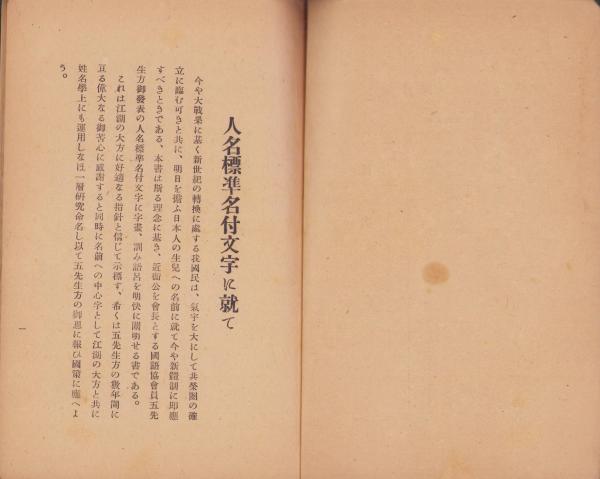 人名標準名付文字に就て
今や大戰果に基く新世紀の轉換に處する我國民は、氣宇を大にして共榮圈の確
立に臨む可きと共に、明日を擔ふ日本人の生兒への名前に就て今や新體制に即應
すべきときである、本書は斯る理念に基き、近衞公を會長とする國語協會員五先
生方御發表の人名標準名付文字に字畫、訓み語呂を明快に闡明せる書である。
これは江湖の大方に好適なる指針と信じて示標す、希くは五先生方の幾年間に
亙る偉大なる御苦心に感謝すると同時に名前への中心字として江湖の大方と共に
姓名學上にも運用しなほ一層研究命名し以て五先生方の御恩に報ひ國策に應へよ
う。
一